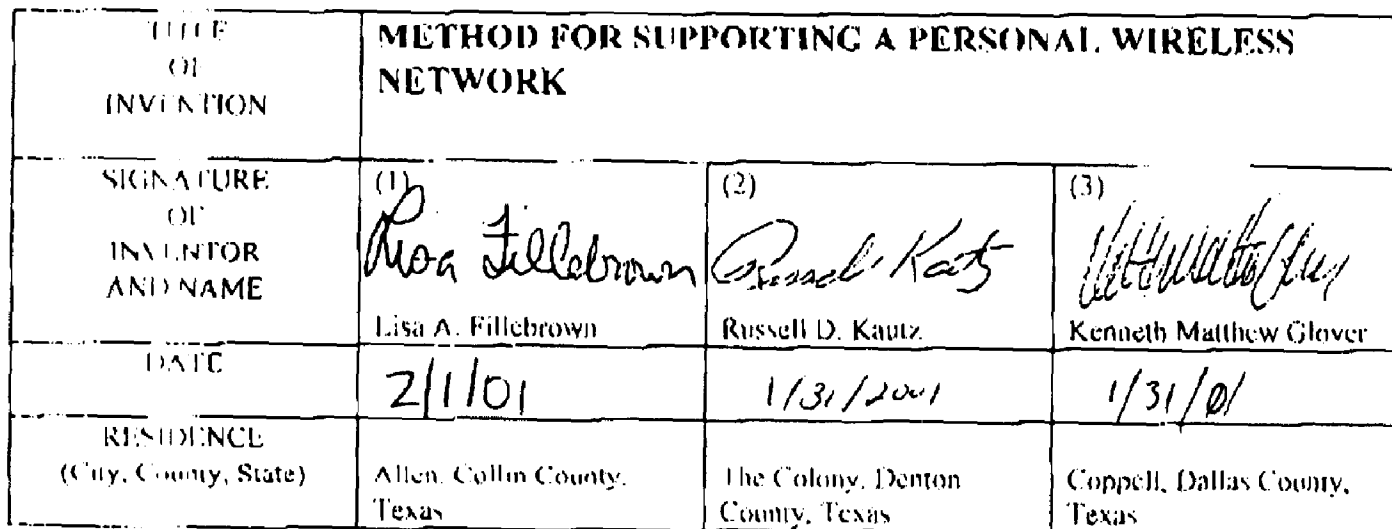 TITLE
OF
INVENTION
METHOD FOR SUPPORTING A PERSONAL WIRELESS
NETWORK
SIGNATURE
OF
INVENTOR
AND NAME
(1)
Lisa Fillebrown
Lisa A. Fillebrown
(2)
Russell Kautz
Russell D. Kautz
(3)
Kenneth Matthew Glover
DATE
2/1/01
1/31/2001
1/31/01
RESIDENCE
(City, County, State)
Allen, Collin County,
Texas
The Colony, Denton
County, Texas
Coppell, Dallas County,
Texas